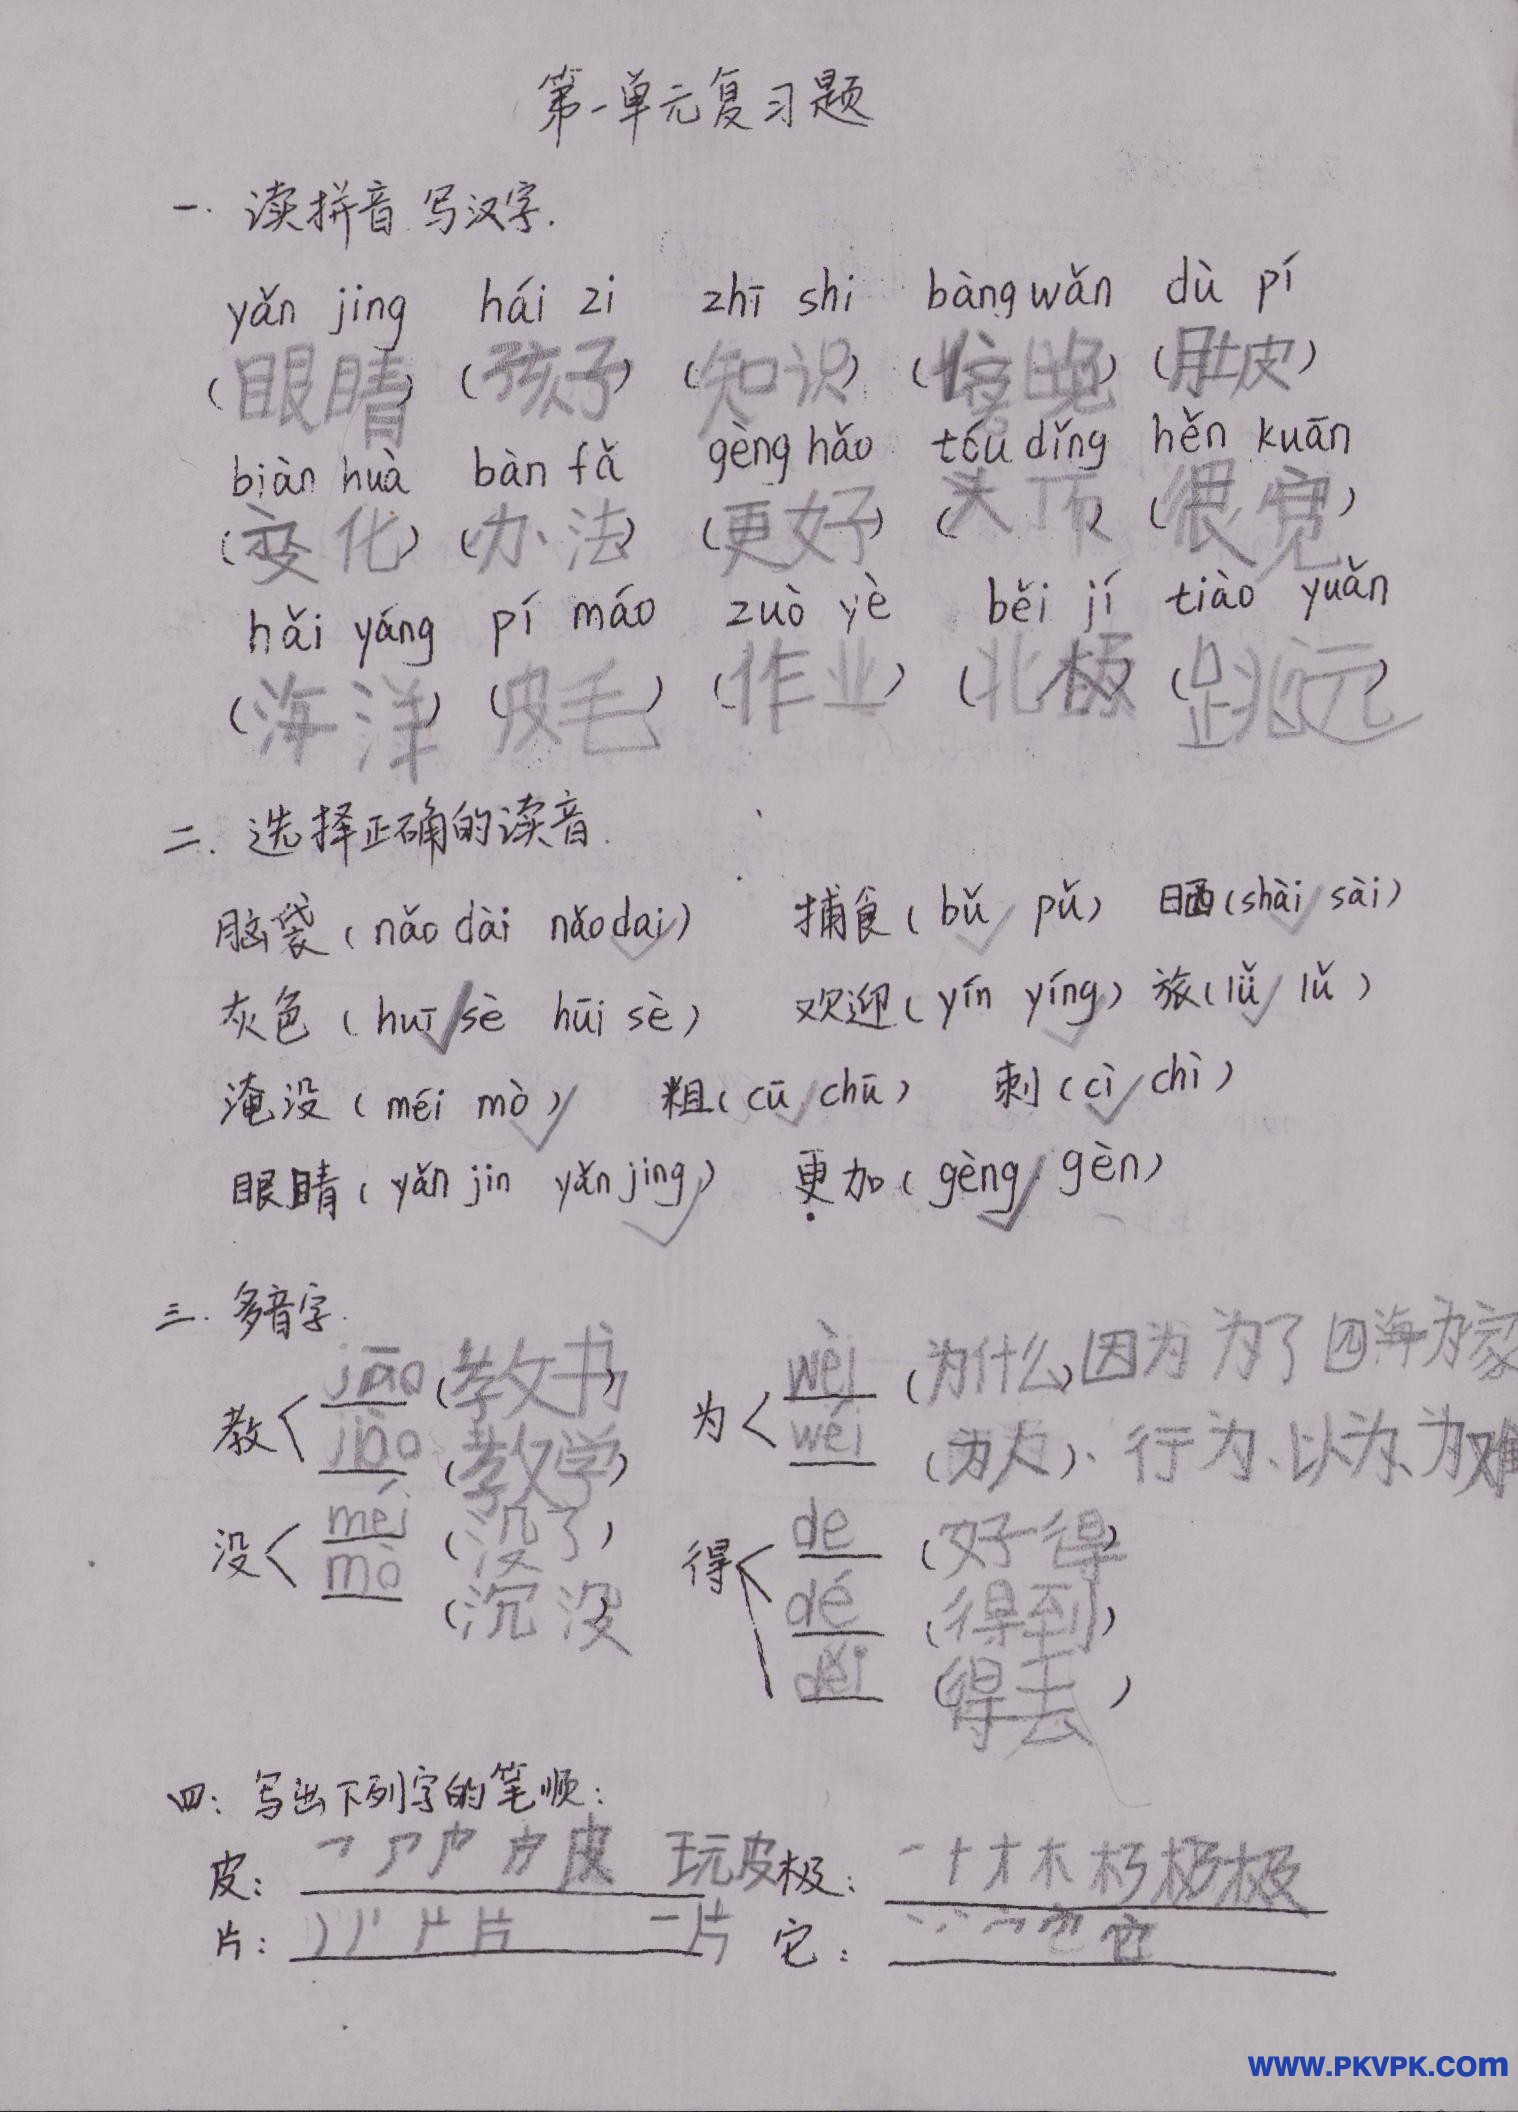 第一单元复习题
一. 读拼音 写汉字.
yǎn jing hái zi zhī shi bàng wǎn dù pí
(眼睛) (孩子) (知识) (傍晚) (肚皮)
biàn huà bàn fǎ gèng hǎo tóu dǐng hěn kuān
(变化) (办法) (更好) (头顶) (很宽)
hǎi yáng pí máo zuò yè běi jí tiào yuǎn
(海洋) (皮毛) (作业) (北极) (跳远)
二. 选择正确的读音.
脑袋 (nǎo dài nǎo dai✓) 捕食 (bǔ✓ pǔ) 晒 (shài✓ sài)
灰色 (huī✓sè hūi sè) 欢迎 (yín yíng✓) 旅 (lǚ✓ lǔ)
淹没 (méi mò✓) 粗 (cū✓ chū) 刺 (cì✓ chì)
眼睛 (yǎn jin yǎn jing✓) 更加 (gèng✓ gèn)
三. 多音字.
教 jāo (教书) 为 wèi (为什么) 因为 为了 四海为家
jiào (教学) wéi (为人)、行为、以为、为难
没 méi (没了) 得 de (好得)
mò (沉没) dé (得到)
děi (得去)
四: 写出下列字的笔顺:
皮: 皮 玩皮 极: 一 十 才 木 极
片: 片 一片 它: 它
WWW.PKVPK.COM